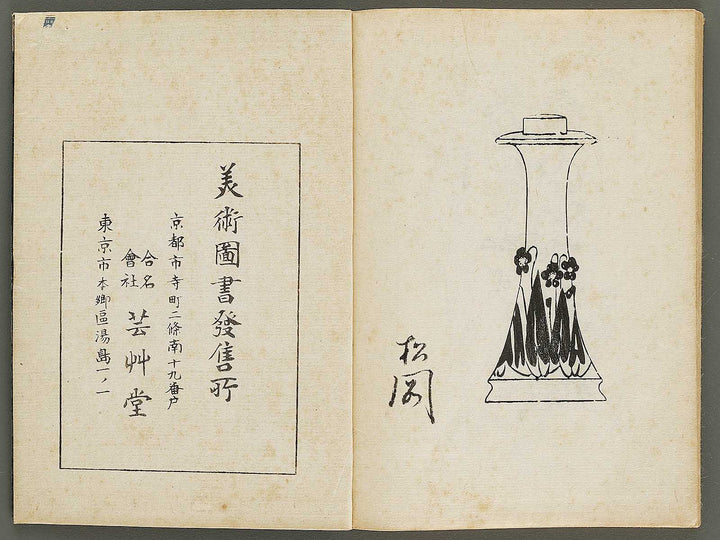 松岡
美術圖書發售所
京都市寺町二條南十九番戸
合名會社 芸艸堂
東京市本郷區湯島一ノ一